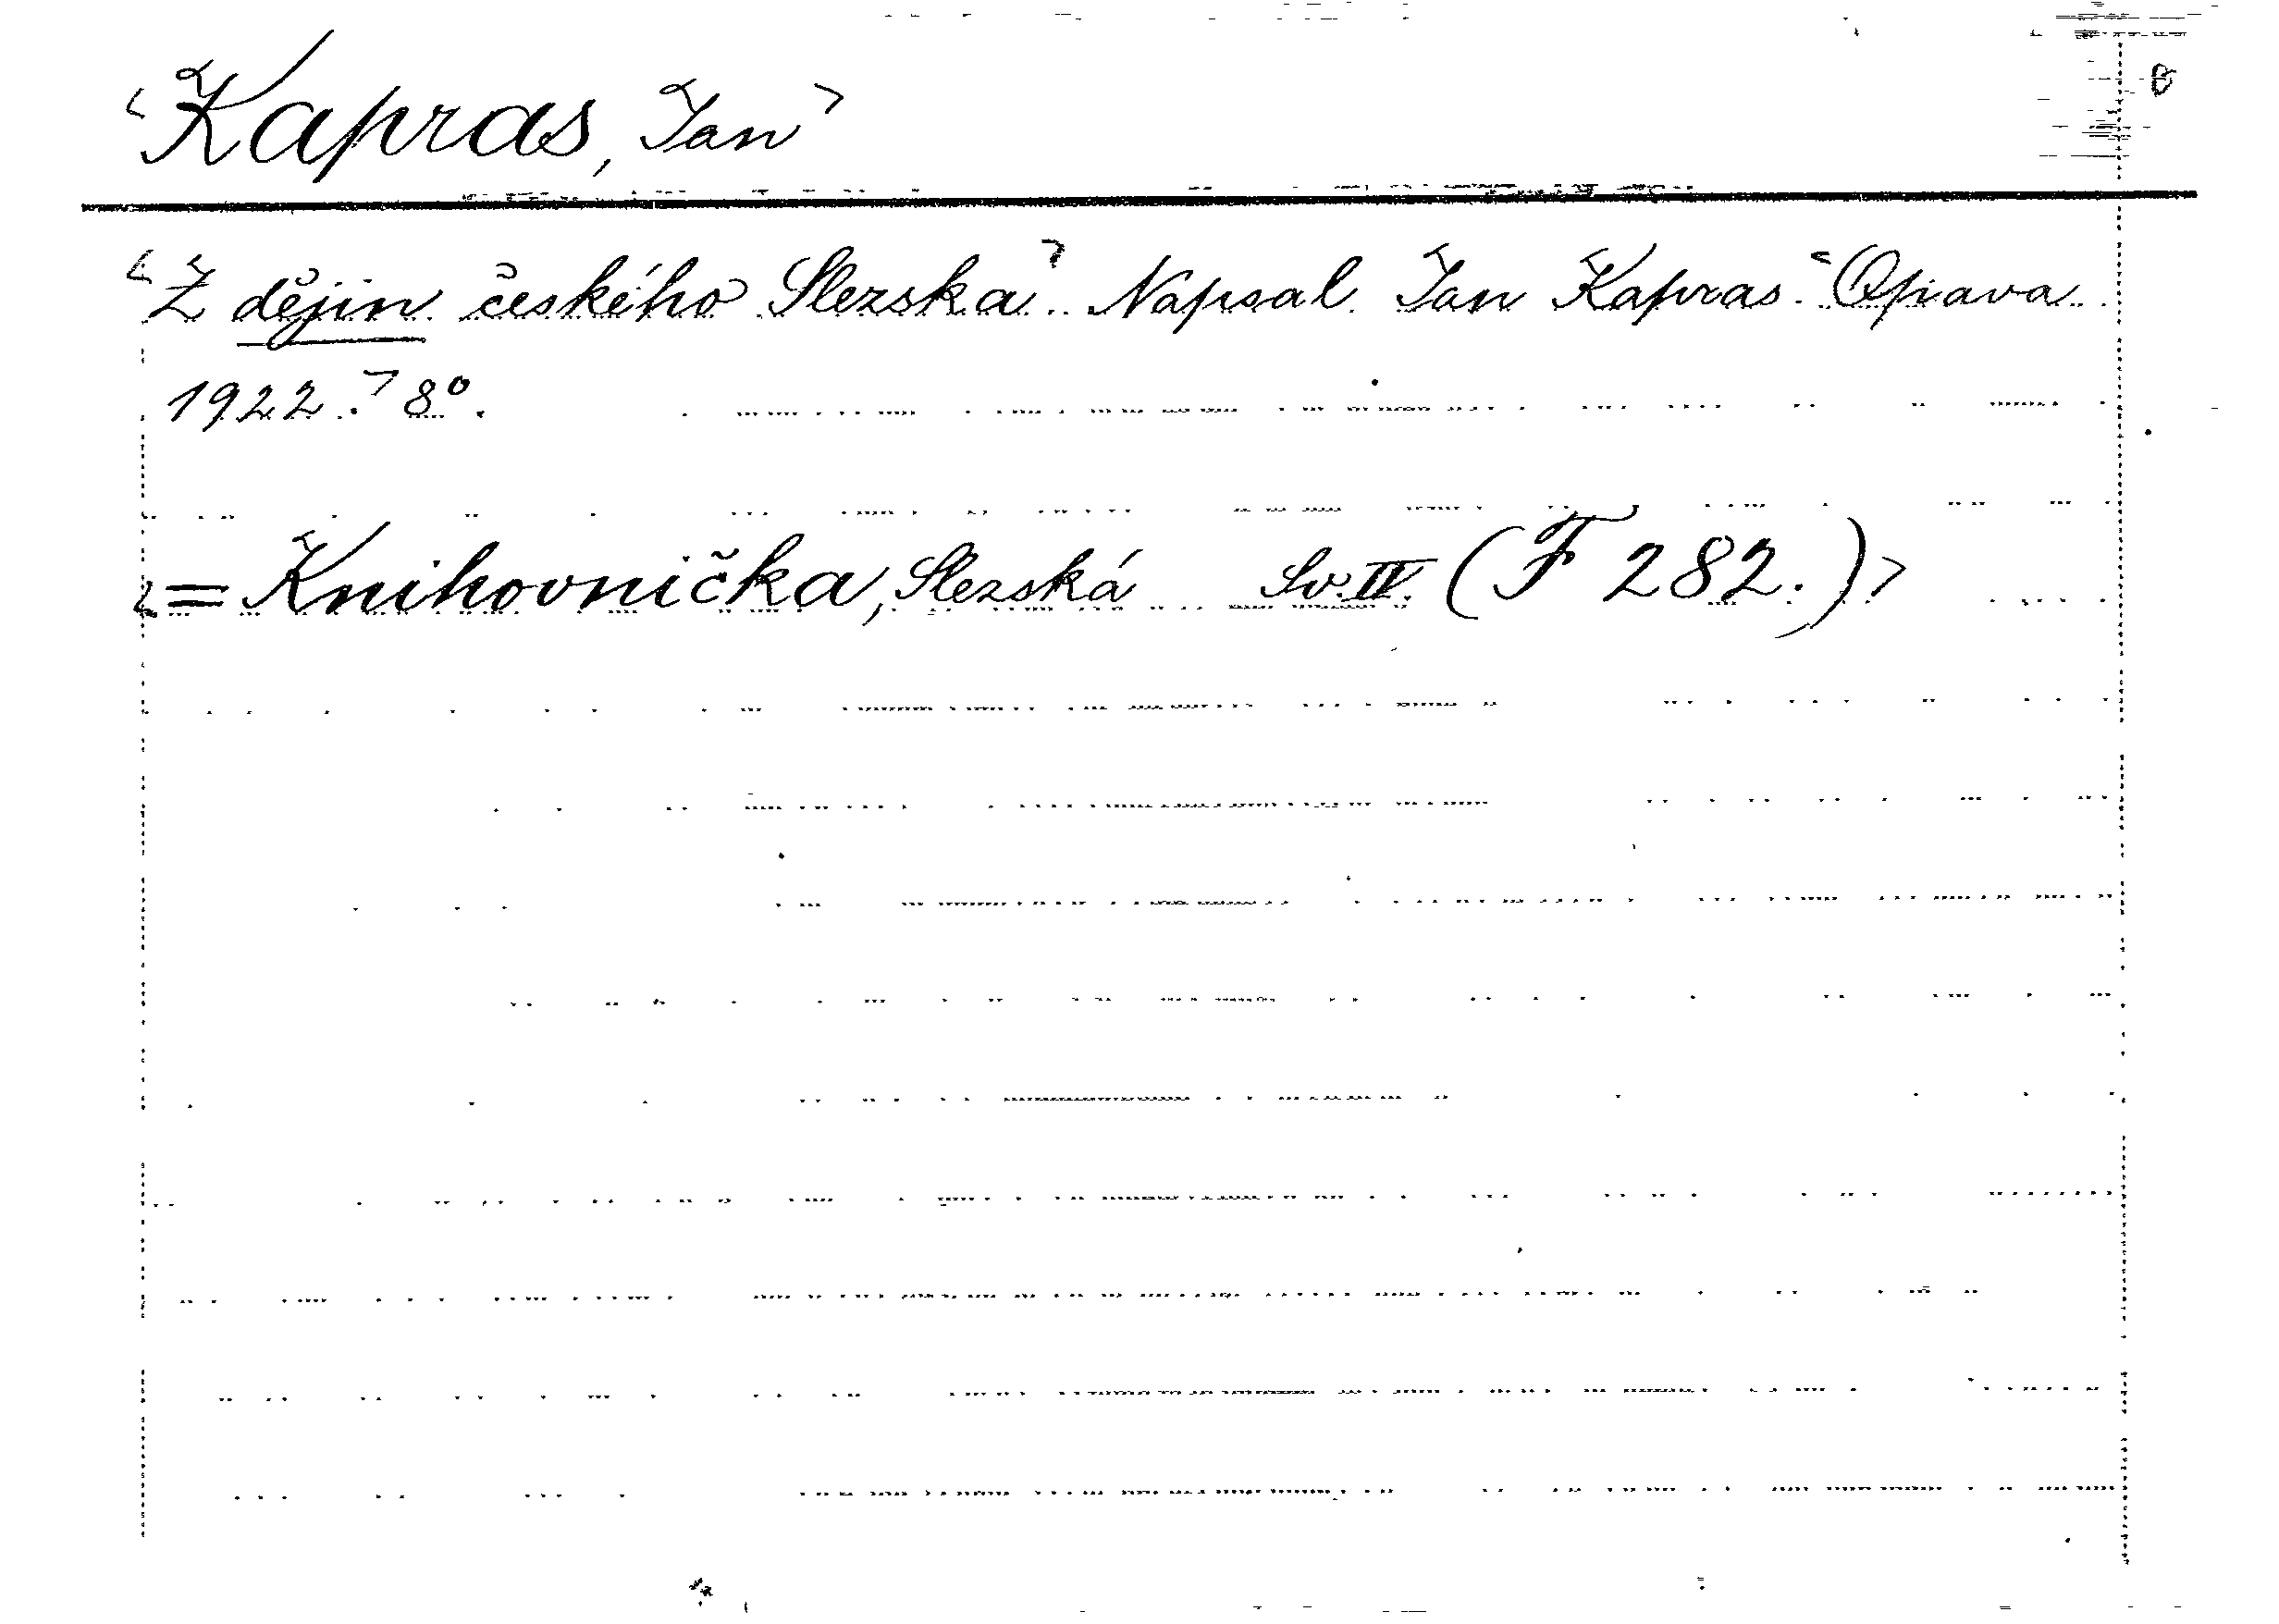 <Kapras, Jan>
<Z dějin českého Slezska>. Napsal Jan Kapras. <Opava
1922.> 8°.
<= Knihovnička, Slezská Sv. IV. (F 282.)>